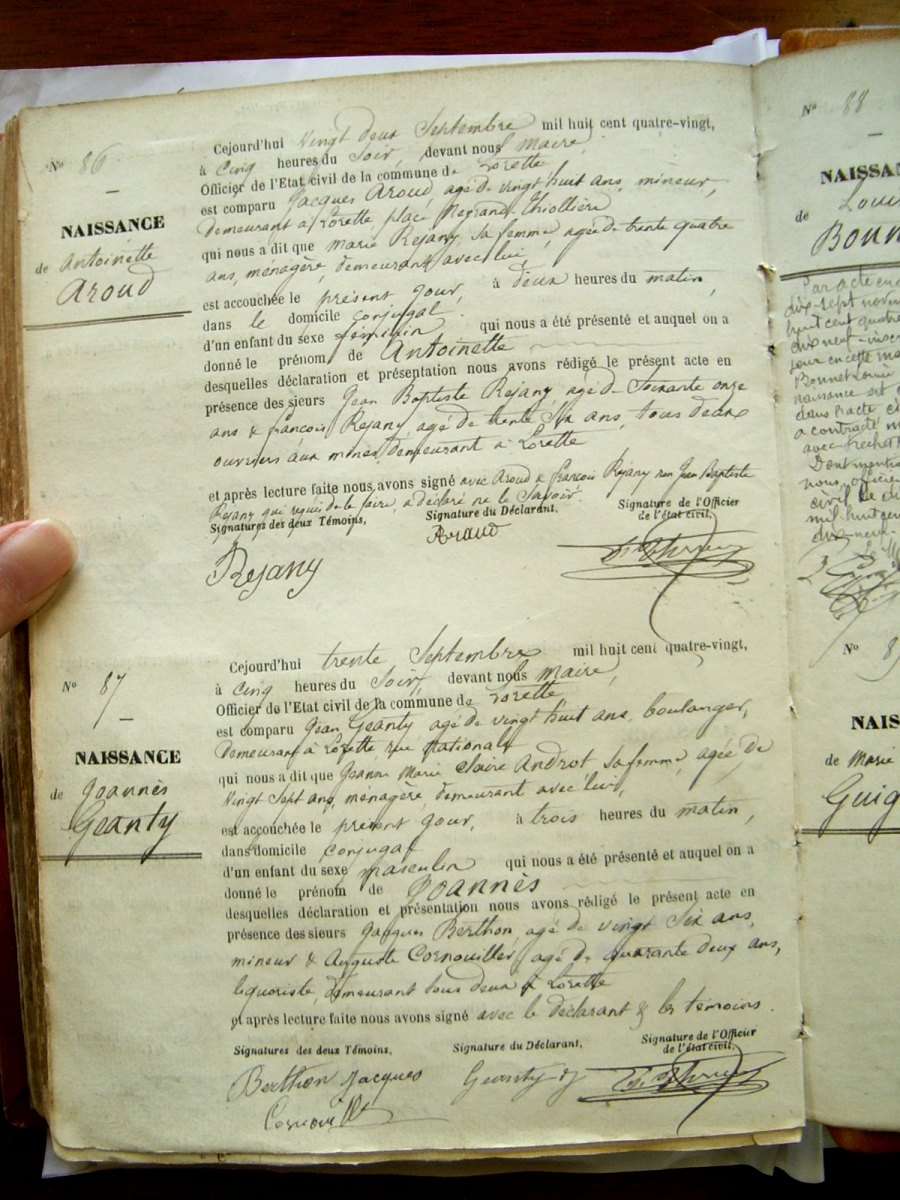 N° 86
NAISSANCE
de Antoinette
Aroud
Cejourd'hui vingt deux Septembre mil huit cent quatre-vingt,
à Cinq heures du Soir, devant nous maire,
Officier de l'Etat civil de la commune de Lorette
est comparu Jacques Aroud, agé de vingt huit ans, mineur,
demeurant à Lorette place Neyrand-Thiollière
qui nous a dit que marie Rejany, sa femme, agée de trente quatre
ans, ménagère, demeurant avec lui,
est accouchée le présent jour, à deux heures du matin,
dans le domicile conjugal
d'un enfant du sexe féminin qui nous a été présenté et auquel on a
donné le prénom de Antoinette
desquelles déclaration et présentation nous avons rédigé le présent acte en
présence des sieurs Jean Baptiste Rejany, agé de Soixante onze
ans & françois Rejany, agé de trente Six ans, tous deux
ouvriers aux mines, demeurant à Lorette
et après lecture faite nous avons signé avec Aroud & françois Rejany, non Jean Baptiste
Rejany qui requis de le faire, a déclaré ne le Savoir.
Signatures des deux Témoins, Signature du Déclarant, Signature de l'Officier
de l'état civil,
Rejany Araud
N° 87
NAISSANCE
de Joannès
Geanty
Cejourd'hui trente Septembre mil huit cent quatre-vingt,
à Cinq heures du Soir, devant nous maire,
Officier de l'Etat civil de la commune de Lorette
est comparu Jean Geanty agé de vingt huit ans, boulanger,
demeurant à Lorette rue Nationale
qui nous a dit que Jeanne Marie Claire Androt, sa femme, agée de
Vingt Sept ans, ménagère, demeurant avec lui,
est accouchée le présent jour, à trois heures du matin,
dans domicile conjugal
d'un enfant du sexe masculin qui nous a été présenté et auquel on a
donné le prénom de Joannès
desquelles déclaration et présentation nous avons rédigé le présent acte en
présence des sieurs Jacques Berthon agé de vingt Six ans,
mineur & Auguste Cornouiller, agé de quarante deux ans,
liquoriste, demeurant tous deux à Lorette
et après lecture faite nous avons signé avec le déclarant & les témoins.
Signatures des deux Témoins, Signature du Déclarant, Signature de l'Officier
de l'état civil,
Berthon Jacques Geanty
N° 88
NAISSAN
de Loui
Bonn
Par acte en
dix-sept novem
huit cent quatre
dix neuf
pour en cette ma
Bonnet Louis
naissance est
dans l'acte
a contracté m
avec
Dont mention
nous, officier
civil de
mil huit cen
dix-neuf.
N° 8
NAIS
de Marie
Guig